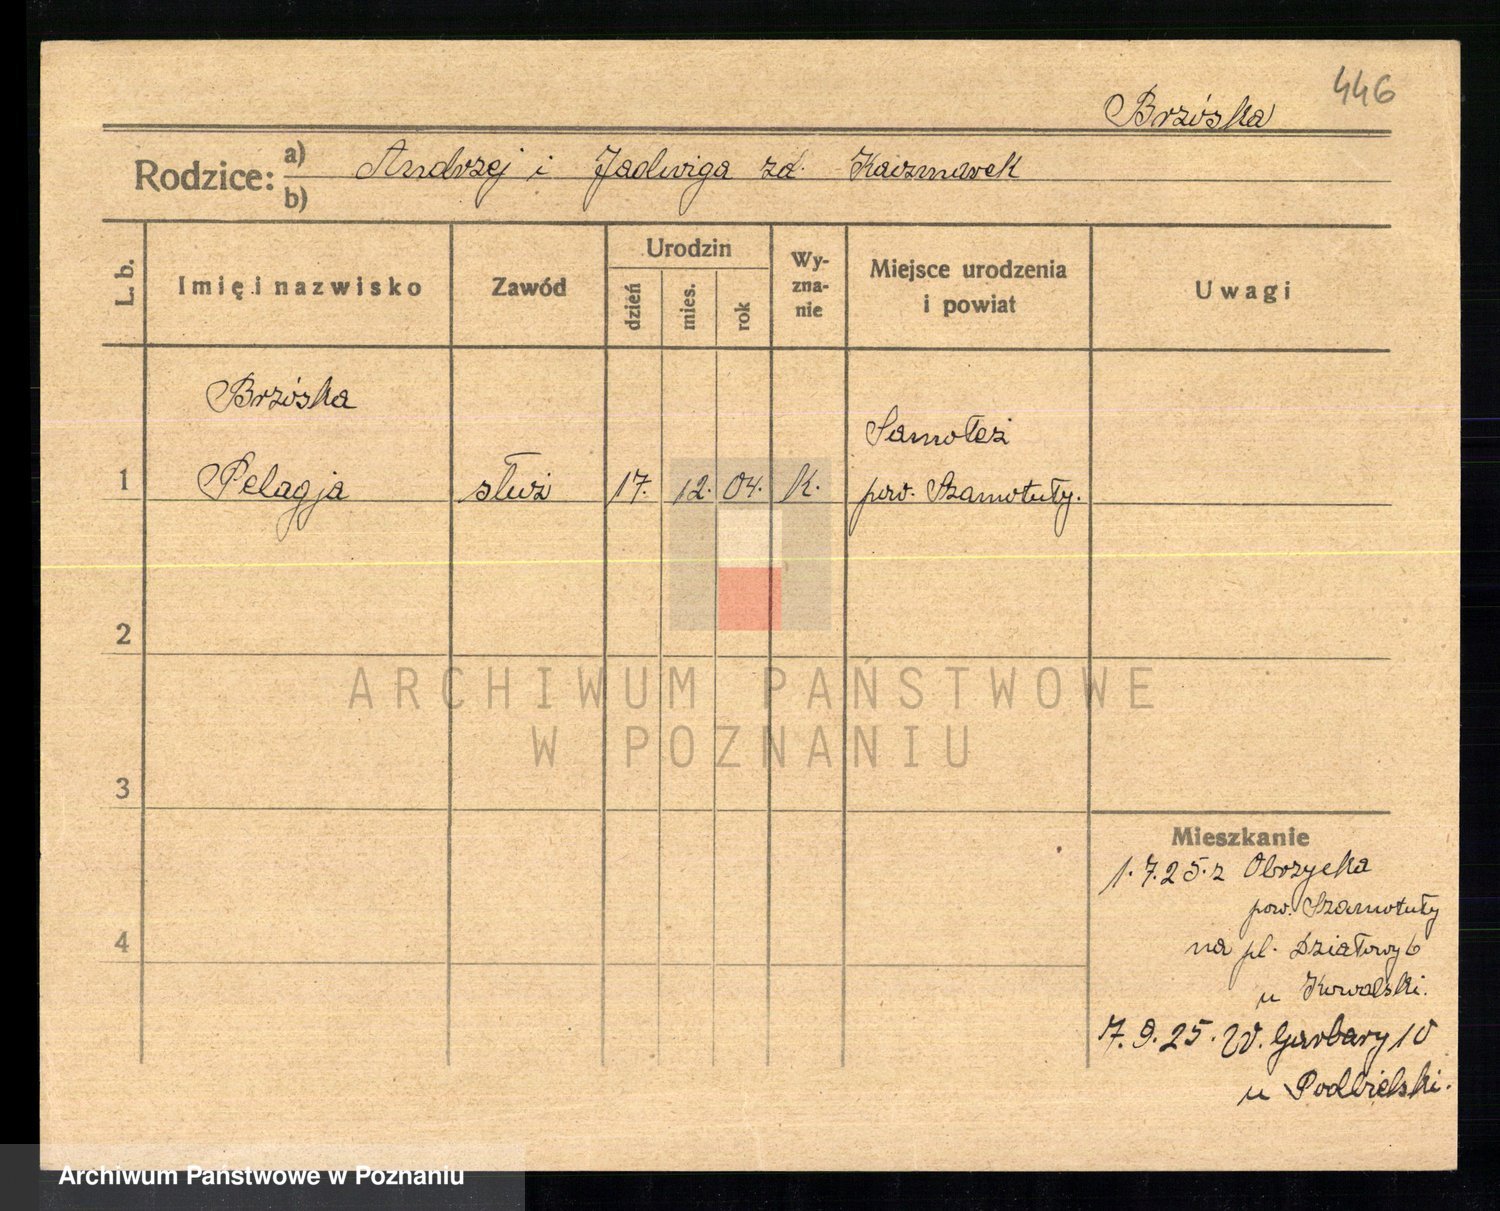 446
Brzóska
Rodzice: a) Andrzej i Jadwiga zd. Kaczmarek
b)
L. b.
Imię i nazwisko
Zawód
Urodzin
dzień
mies.
rok
Wy-
zna-
nie
Miejsce urodzenia
i powiat
Uwagi
Brzóska
Samołęż
1 Pelagja służ 17. 12. 04. K. pow. Szamotuły.
2
3
4
Mieszkanie
1.7.25. z Obrzycka
pow. Szamotuły
na pl. Działowy 6
u Kowalski.
7.9.25. W. Garbary 10
u Podbielski.
ARCHIWUM PAŃSTWOWE
W POZNANIU
Archiwum Państwowe w Poznaniu